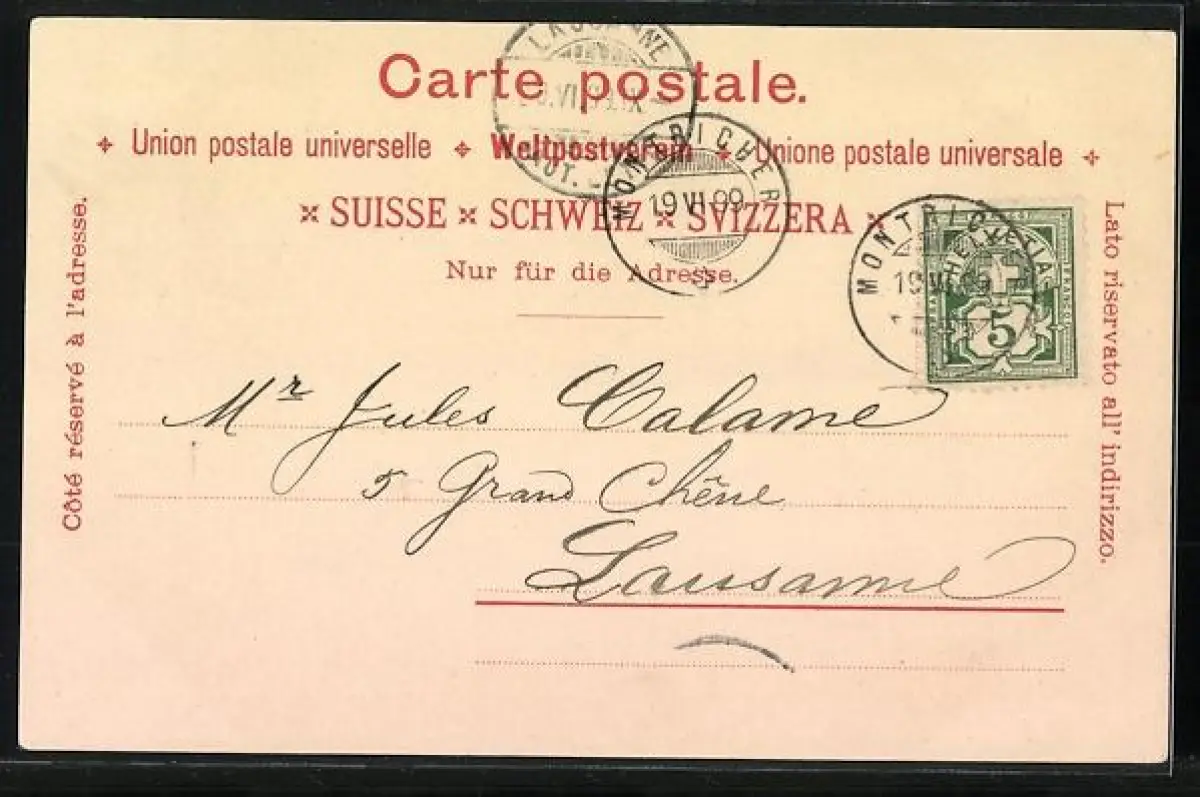 LAUSANNE
Carte postale.
Union postale universelle Weltpostverein Unione postale universale
MONTRICHER
19 VI 99
SUISSE SCHWEIZ SVIZZERA
Nur für die Adresse.
Côté réservé à l'adresse.
Lato riservato all' indirizzo.
HELVETIA
FRANCO
5
Mr Jules Calame
5 Grand Chêne
Lausanne